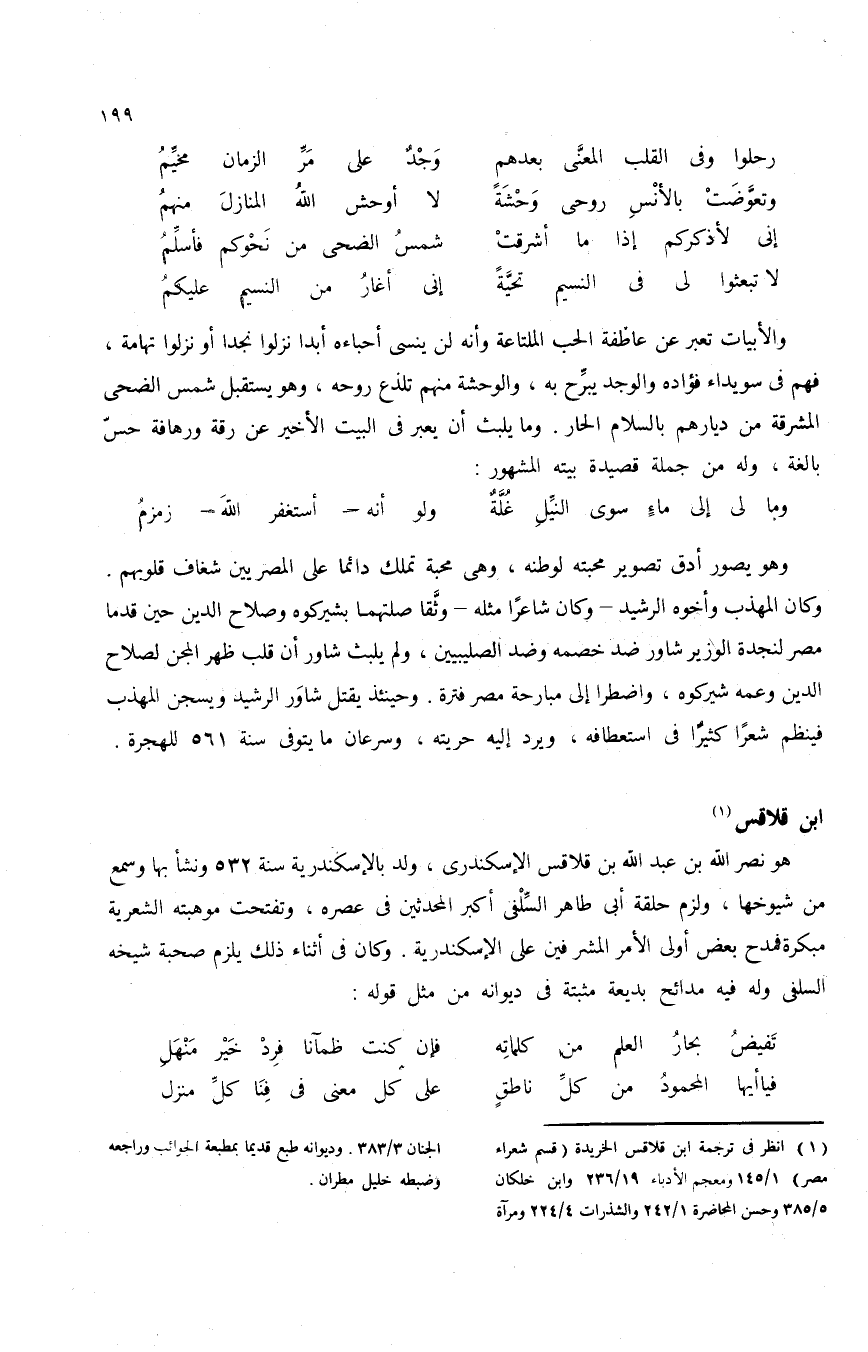 ١٩٩
رحلوا وفى القلب المعنَّى بعدهم وَجْدٌ على مَرِّ الزمان مخيِّمُ
وتعوَّضَتْ بالأنْسِ روحى وَحْشَةً لا أوحش اللهُ المنازلَ منهمُ
إنى لأذكركم إذا ما أشرقتْ شمسُ الضحى من نَحْوكم فأسلِّمُ
لا تبعثوا لى فى النسيم تحيَّةً إنى أغارُ من النسيم عليكمُ
والأبيات تعبر عن عاطفة الحب الملتاعة وأنه لن ينسى أحباءه أبدا نزلوا نجدا أو نزلوا تهامة ،
فهم فى سويداء فؤاده والوجد يبرِّح به ، والوحشة منهم تلذع روحه ، وهو يستقبل شمس الضحى
المشرقة من ديارهم بالسلام الحار . وما يلبث أن يعبر فى البيت الأخير عن رقة ورهافة حسّ
بالغة ، وله من جملة قصيدة بيته المشهور :
وما لى إلى ماءٍ سوى النيِّلِ غُلَّةٌ ولو أنه – أستغفر اللهَ – زمزمُ
وهو يصور أدق تصوير محبته لوطنه ، وهى محبة تملك دائما على المصريين شغاف قلوبهم .
وكان المهذب وأخوه الرشيد – وكان شاعرًا مثله – وثَّقا صلتهما بشيركوه وصلاح الدين حين قدما
مصر لنجدة الوزير شاور ضد خصمه وضد الصليبيين ، ولم يلبث شاور أن قلب ظهر المجن لصلاح
الدين وعمه شيركوه ، واضطرا إلى مبارحة مصر فترة . وحينئذ يقتل شاوَر الرشيد ويسجن المهذب
فينظم شعرًا كثيرًا فى استعطافه ، ويرد إليه حريته ، وسرعان ما يتوفى سنة ٥٦١ للهجرة .
ابن قلاقس (١)
هو نصر الله بن عبد الله بن قلاقس الإسكندرى ، ولد بالإسكندرية سنة ٥٣٢ ونشأ بها وسمع
من شيوخها ، ولزم حلقة أبى طاهر السِّلْفى أكبر المحدثين فى عصره ، وتفتحت موهبته الشعرية
مبكرة فمدح بعض أولى الأمر المشرفين على الإسكندرية . وكان فى أثناء ذلك يلزم صحبة شيخه
السلفى وله فيه مدائح بديعة مثبتة فى ديوانه من مثل قوله :
تَفيضُ بحارُ العلم من كلماتِه فإن كنت ظمآنا فرِدْ خَيْر مَنْهَلِ
فيا أيها المحمودُ من كلِّ ناطقٍ على كل معنى فى فِنَا كلِّ منزل
(١) انظر فى ترجمة ابن قلاقس الخريدة ( قسم شعراء
مصر) ١٤٥/١ ومعجم الأدباء ٢٣٦/١٩ وابن خلكان
٣٨٥/٥ وحسن المحاضرة ٢٤٢/١ والشذرات ٢٢٤/٤ ومرآة
الجنان ٣٨٣/٣ . وديوانه طبع قديما بمطبعة الجوائب وراجعه
وضبطه خليل مطران .